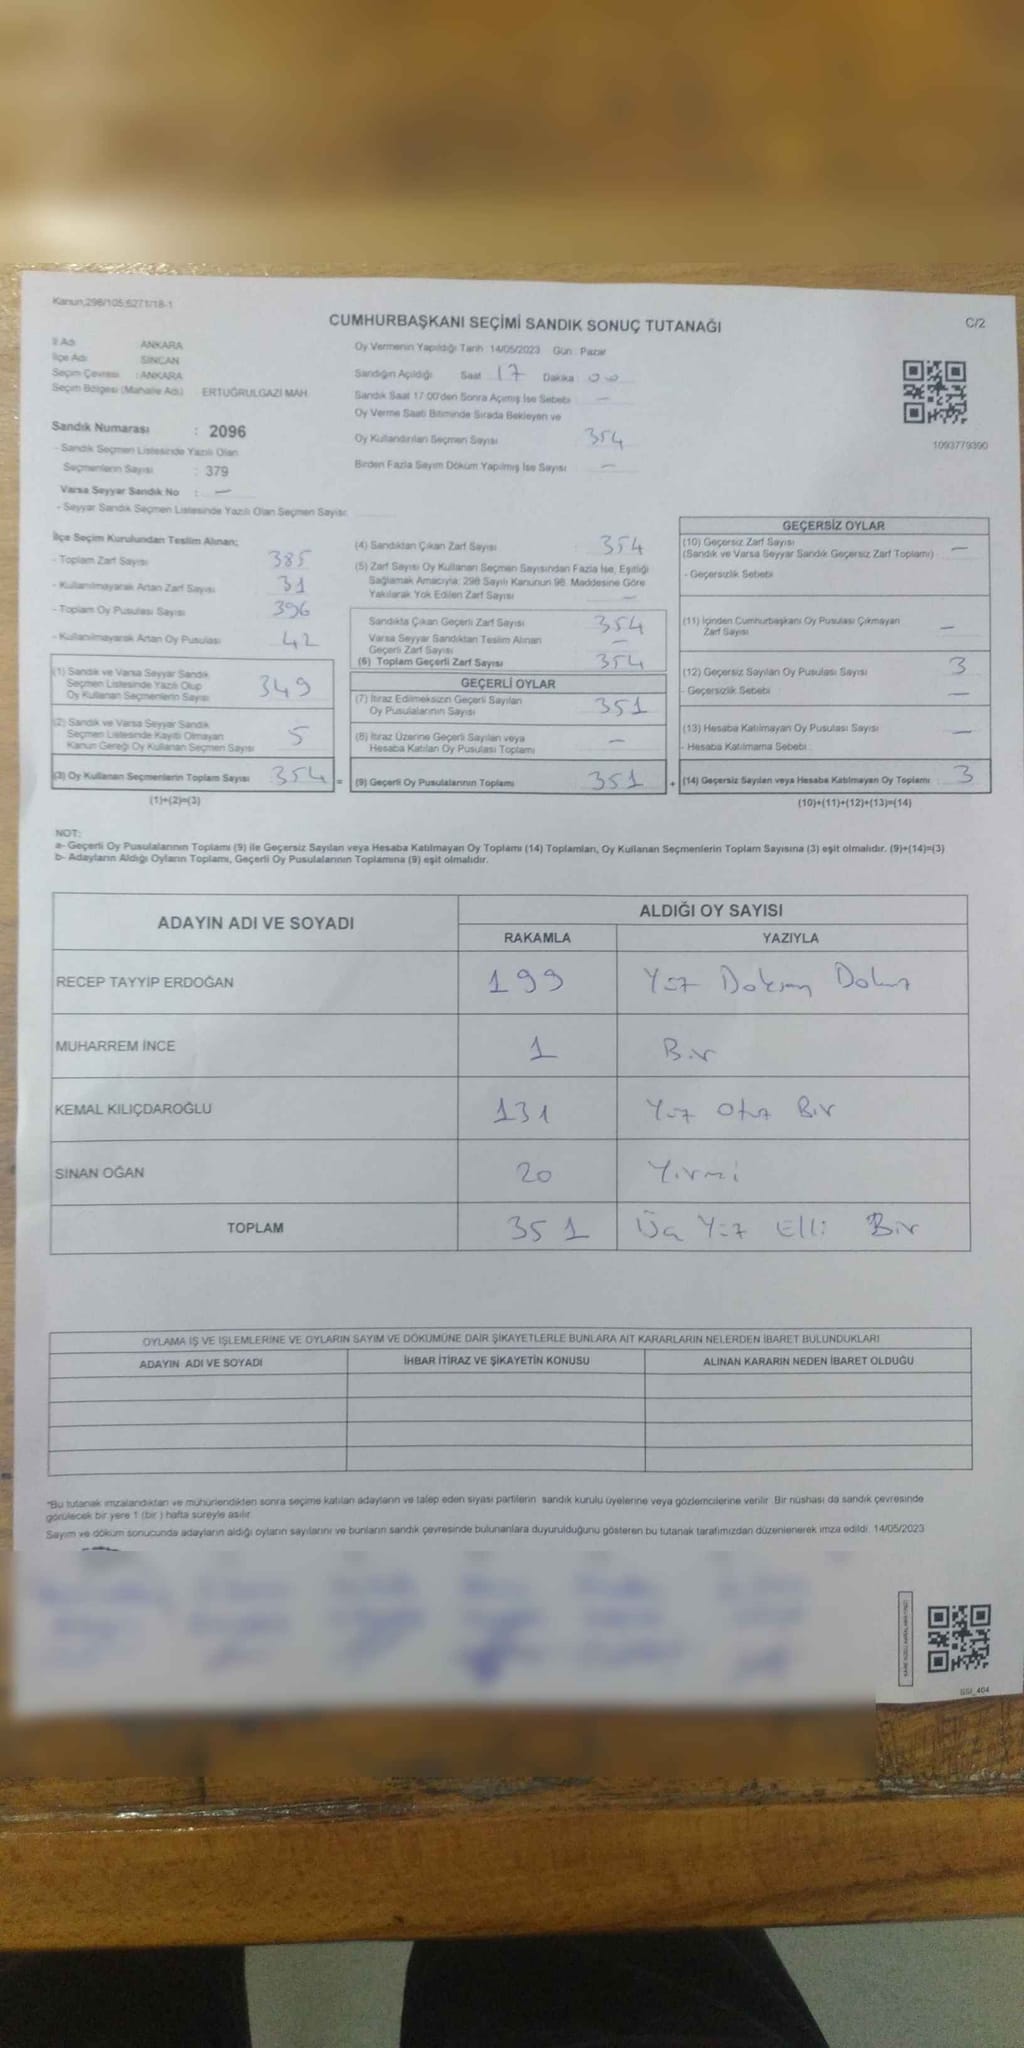 Kanun;298/105;6271/18-1
CUMHURBAŞKANI SEÇİMİ SANDIK SONUÇ TUTANAĞI
C/2
İl Adı ANKARA
İlçe Adı SİNCAN
Seçim Çevresi : ANKARA
Seçim Bölgesi (Mahalle Adı) ERTUĞRULGAZİ MAH
Sandık Numarası : 2096
- Sandık Seçmen Listesinde Yazılı Olan
Seçmenlerin Sayısı : 379
Varsa Seyyar Sandık No : —
- Seyyar Sandık Seçmen Listesinde Yazılı Olan Seçmen Sayısı:
Oy Vermenin Yapıldığı Tarih : 14/05/2023 Gün : Pazar
Sandığın Açıldığı Saat 17 Dakika : 00
Sandık Saat 17:00'den Sonra Açılmış İse Sebebi —
Oy Verme Saati Bitiminde Sırada Bekleyen ve
Oy Kullandırılan Seçmen Sayısı 354
Birden Fazla Sayım Döküm Yapılmış İse Sayısı —
1093779390
İlçe Seçim Kurulundan Teslim Alınan;
- Toplam Zarf Sayısı 385
- Kullanılmayarak Artan Zarf Sayısı 31
- Toplam Oy Pusulası Sayısı 396
- Kullanılmayarak Artan Oy Pusulası 42
(1) Sandık ve Varsa Seyyar Sandık
Seçmen Listesinde Yazılı Olup
Oy Kullanan Seçmenlerin Sayısı 349
(2) Sandık ve Varsa Seyyar Sandık
Seçmen Listesinde Kayıtlı Olmayan
Kanun Gereği Oy Kullanan Seçmen Sayısı 5
(3) Oy Kullanan Seçmenlerin Toplam Sayısı 354 =
(1)+(2)=(3)
(4) Sandıktan Çıkan Zarf Sayısı 354
(5) Zarf Sayısı Oy Kullanan Seçmen Sayısından Fazla İse, Eşitliği
Sağlamak Amacıyla; 298 Sayılı Kanunun 98. Maddesine Göre
Yakılarak Yok Edilen Zarf Sayısı —
Sandıkta Çıkan Geçerli Zarf Sayısı 354
Varsa Seyyar Sandıktan Teslim Alınan
Geçerli Zarf Sayısı —
(6) Toplam Geçerli Zarf Sayısı 354
GEÇERLİ OYLAR
(7) İtiraz Edilmeksizin Geçerli Sayılan
Oy Pusulalarının Sayısı 351
(8) İtiraz Üzerine Geçerli Sayılan veya
Hesaba Katılan Oy Pusulası Toplamı —
(9) Geçerli Oy Pusulalarının Toplamı 351 +
GEÇERSİZ OYLAR
(10) Geçersiz Zarf Sayısı —
(Sandık ve Varsa Seyyar Sandık Geçersiz Zarf Toplamı)
- Geçersizlik Sebebi
(11) İçinden Cumhurbaşkanı Oy Pusulası Çıkmayan
Zarf Sayısı —
(12) Geçersiz Sayılan Oy Pusulası Sayısı 3
- Geçersizlik Sebebi —
(13) Hesaba Katılmayan Oy Pusulası Sayısı —
- Hesaba Katılmama Sebebi
(14) Geçersiz Sayılan veya Hesaba Katılmayan Oy Toplamı 3
(10)+(11)+(12)+(13)=(14)
NOT:
a- Geçerli Oy Pusulalarının Toplamı (9) ile Geçersiz Sayılan veya Hesaba Katılmayan Oy Toplamı (14) Toplamları, Oy Kullanan Seçmenlerin Toplam Sayısına (3) eşit olmalıdır. (9)+(14)=(3)
b- Adayların Aldığı Oyların Toplamı, Geçerli Oy Pusulalarının Toplamına (9) eşit olmalıdır.
ADAYIN ADI VE SOYADI ALDIĞI OY SAYISI
RAKAMLA YAZIYLA
RECEP TAYYİP ERDOĞAN 199 Yüz Doksan Dokuz
MUHARREM İNCE 1 Bir
KEMAL KILIÇDAROĞLU 131 Yüz Otuz Bir
SİNAN OĞAN 20 Yirmi
TOPLAM 351 Üç Yüz Elli Bir
OYLAMA İŞ VE İŞLEMLERİNE VE OYLARIN SAYIM VE DÖKÜMÜNE DAİR ŞİKAYETLERLE BUNLARA AİT KARARLARIN NELERDEN İBARET BULUNDUKLARI
ADAYIN ADI VE SOYADI İHBAR İTİRAZ VE ŞİKAYETİN KONUSU ALINAN KARARIN NEDEN İBARET OLDUĞU
*Bu tutanak imzalandıktan ve mühürlendikten sonra seçime katılan adayların ve talep eden siyasi partilerin sandık kurulu üyelerine veya gözlemcilerine verilir. Bir nüshası da sandık çevresinde
görülecek bir yere 1 (bir ) hafta süreyle asılır.
Sayım ve döküm sonucunda adayların aldığı oyların sayılarını ve bunların sandık çevresinde bulunanlara duyurulduğunu gösteren bu tutanak tarafımızdan düzenlenerek imza edildi. 14/05/2023